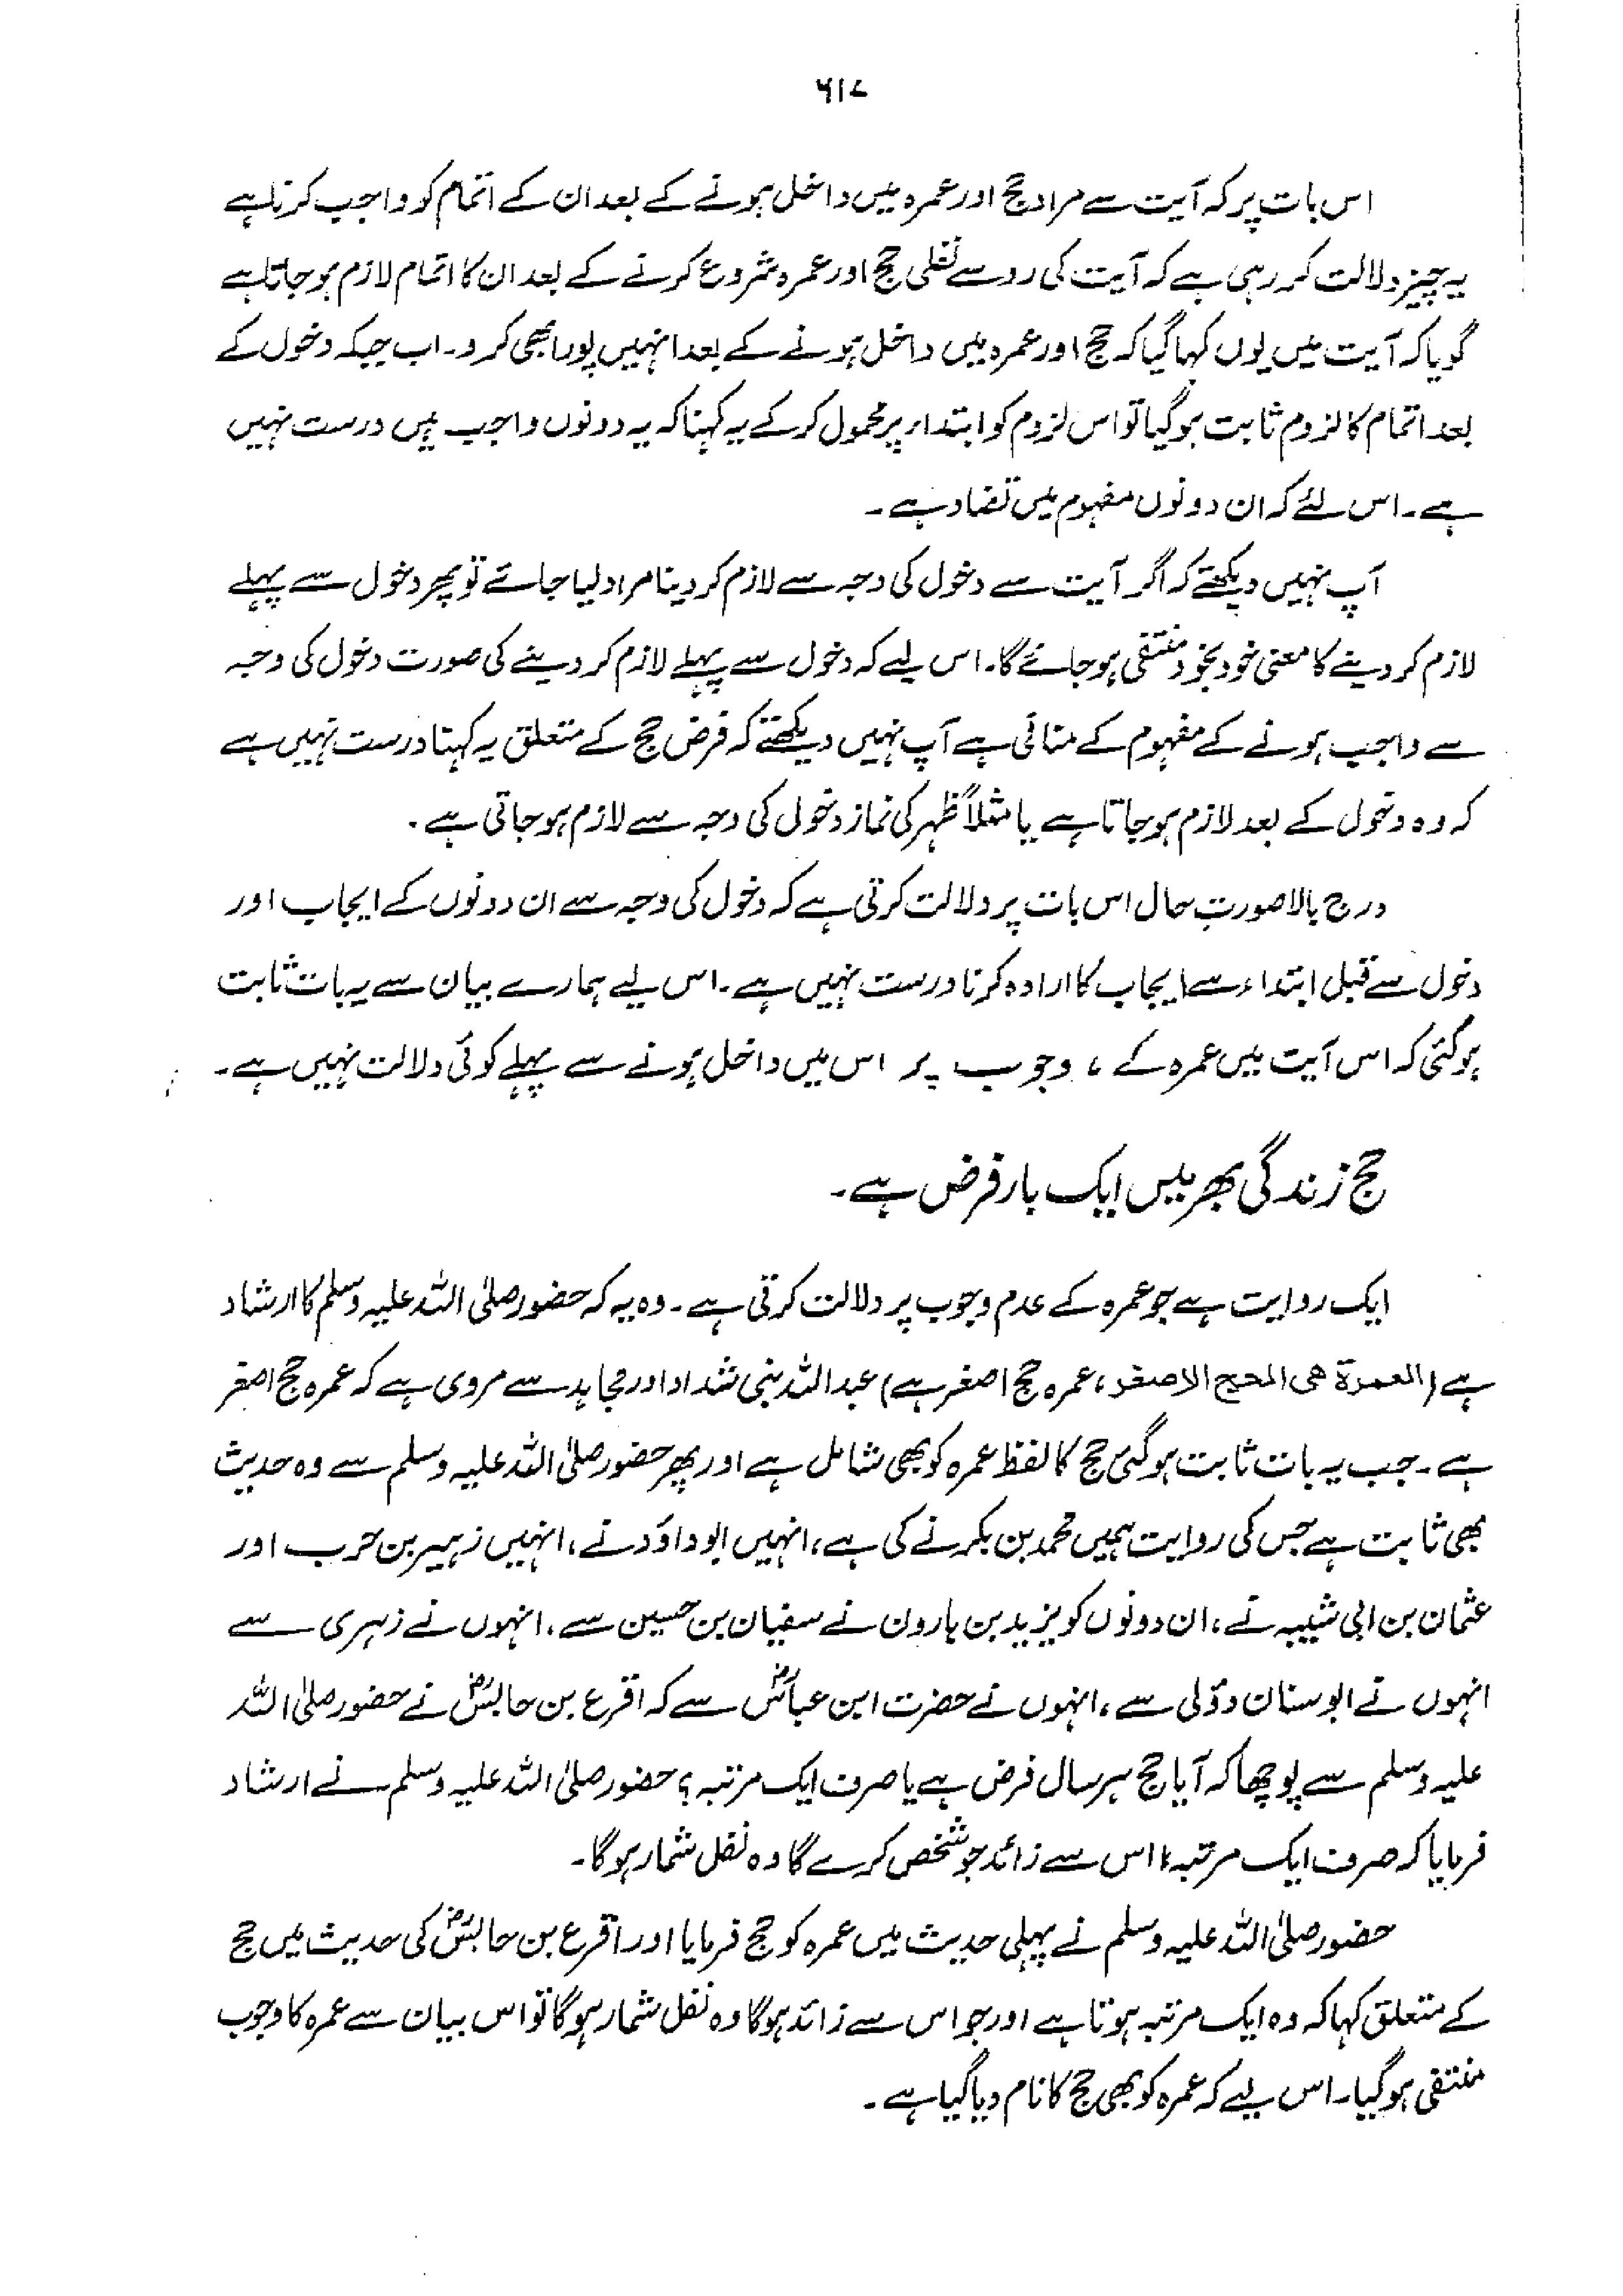 ۶۱۷
اس بات پر کہ آیت سے مراد حج اور عمرہ میں داخل ہونے کے بعد ان کے اتمام کو واجب کرنا ہے
یہ چیز دلالت کر رہی ہے کہ آیت کی رو سے نفلی حج اور عمرہ شروع کرنے کے بعد ان کا اتمام لازم ہو جاتا ہے
گویا کہ آیت میں یوں کہا گیا کہ حج اور عمرہ میں داخل ہونے کے بعد انہیں پورا بھی کرو۔ اب جبکہ دخول کے
بعد اتمام کا لزوم ثابت ہو گیا تو اس لزوم کو ابتداء پر محمول کر کے یہ کہنا کہ یہ دونوں واجب ہیں درست نہیں
ہے۔ اس لئے کہ ان دونوں مفہوم میں تضاد ہے۔
آپ نہیں دیکھتے کہ اگر آیت سے دخول کی وجہ سے لازم کر دینا مراد لیا جائے تو پھر دخول سے پہلے
لازم کر دینے کا معنی خود بخود منتفی ہو جائے گا۔ اس لیے کہ دخول سے پہلے لازم کر دینے کی صورت دخول کی وجہ
سے واجب ہونے کے مفہوم کے منافی ہے آپ نہیں دیکھتے کہ فرض حج کے متعلق یہ کہنا درست نہیں ہے
کہ وہ دخول کے بعد لازم ہو جاتا ہے یا مثلاً ظہر کی نماز دخول کی وجہ سے لازم ہو جاتی ہے۔
درج بالا صورتِ حال اس بات پر دلالت کرتی ہے کہ دخول کی وجہ سے ان دونوں کے ایجاب اور
دخول سے قبل ابتداء سے ایجاب کا ارادہ کرنا درست نہیں ہے۔ اس لیے ہمارے بیان سے یہ بات ثابت
ہو گئی کہ اس آیت میں عمرہ کے ، وجوب پر اس میں داخل ہونے سے پہلے کوئی دلالت نہیں ہے۔
حج زندگی بھر میں ایک بار فرض ہے۔
ایک روایت ہے جو عمرہ کے عدم وجوب پر دلالت کرتی ہے۔ وہ یہ کہ حضور صلی اللہ علیہ وسلم کا ارشاد
ہے (العمرة هی الحج الاصغر، عمرہ حج اصغر ہے) عبداللہ بنی شداد اور مجاہد سے مروی ہے کہ عمرہ حج اصغر
ہے۔ جب یہ بات ثابت ہو گئی حج کا لفظ عمرہ کو بھی شامل ہے اور پھر حضور صلی اللہ علیہ وسلم سے وہ حدیث
بھی ثابت ہے جس کی روایت ہمیں محمد بن بکر نے کی ہے، انہیں ابو داؤد نے، انہیں زہیر بن حرب اور
عثمان بن ابی شیبہ نے، ان دونوں کو یزید بن ہارون نے سفیان بن حسین سے، انہوں نے زہری سے
انہوں نے ابو سنان دؤلی سے، انہوں نے حضرت ابن عباسؓ سے کہ اقرع بن حابسؓ نے حضور صلی اللہ
علیہ وسلم سے پوچھا کہ آیا حج ہر سال فرض ہے یا صرف ایک مرتبہ؟ حضور صلی اللہ علیہ وسلم نے ارشاد
فرمایا کہ صرف ایک مرتبہ، اس سے زائد جو شخص کرے گا وہ نفل شمار ہوگا۔
حضور صلی اللہ علیہ وسلم نے پہلی حدیث میں عمرہ کو حج فرمایا اور اقرع بن حابسؓ کی حدیث میں حج
کے متعلق کہا کہ وہ ایک مرتبہ ہوتا ہے اور جو اس سے زائد ہوگا وہ نفل شمار ہوگا تو اس بیان سے عمرہ کا وجوب
منتفی ہو گیا۔ اس لیے کہ عمرہ کو بھی حج کا نام دیا گیا ہے۔